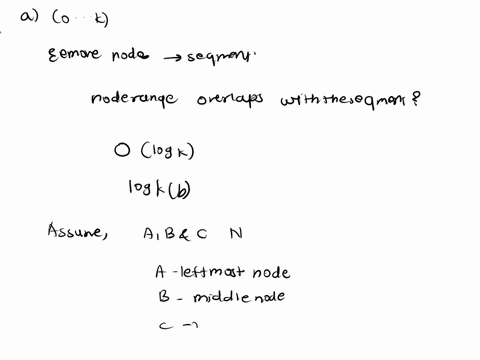 a) (0 ... k)
Remove node → segment.
node range overlaps with the segment?
O (log k)
log k (b)
Assume, A, B & C N
A - leftmost node
B - middle node
C →